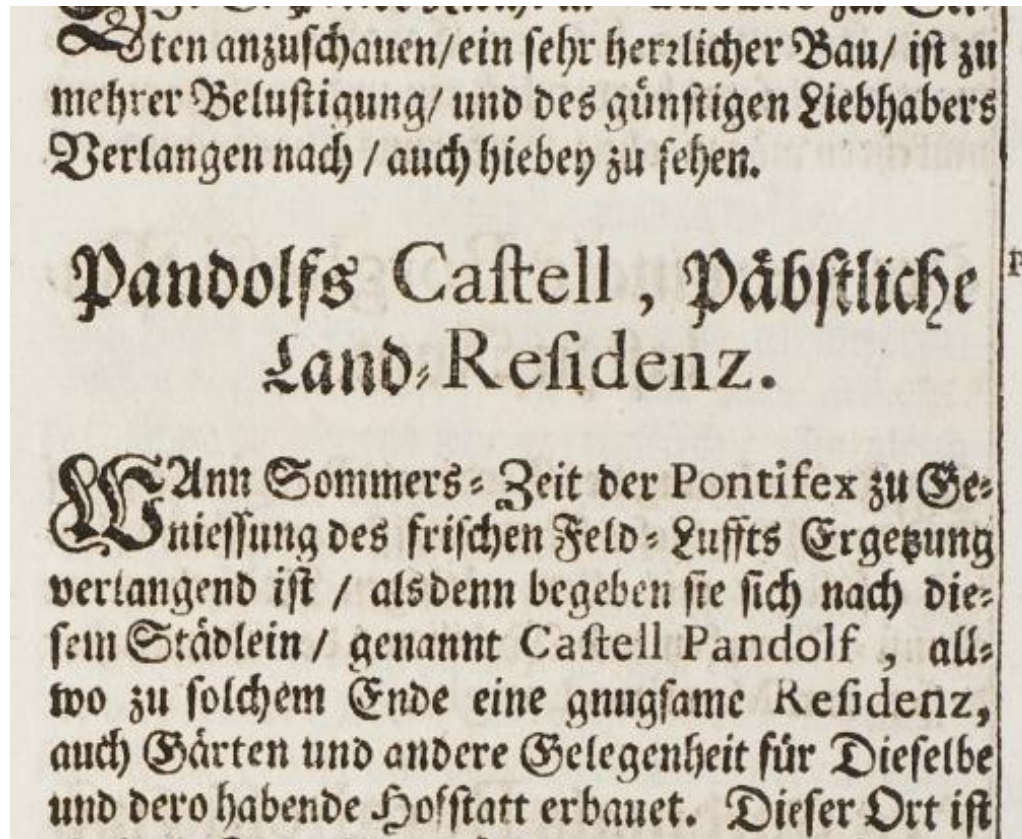 ten anzuschauen/ein sehr herrlicher Bau/ ist zu
mehrer Belustigung/ und des günstigen Liebhabers
Verlangen nach / auch hiebey zu sehen.
Pandolfs Castell, Päbstliche
Land-Residenz.
WAnn Sommers-Zeit der Pontifex zu Ge-
niessung des frischen Feld-Luffts Ergetzung
verlangend ist / alsdenn begeben sie sich nach die-
sem Städlein / genannt Castell Pandolf, all-
wo zu solchem Ende eine gnugsame Residenz,
auch Gärten und andere Gelegenheit für Dieselbe
und dero habende Hofstatt erbauet. Dieser Ort ist